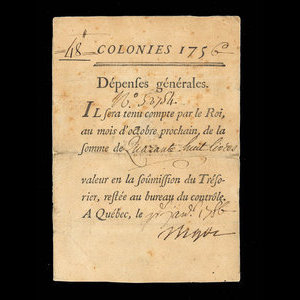 48# COLONIES 1756
Dépenses générales.
No.
IL sera tenu compte par le Roi,
au mois d'octobre prochain, de la
somme de Quarante huit livres
valeur en la soûmission du Tréso-
rier, restée au bureau du contrôle.
A Québec, le janv. 1756